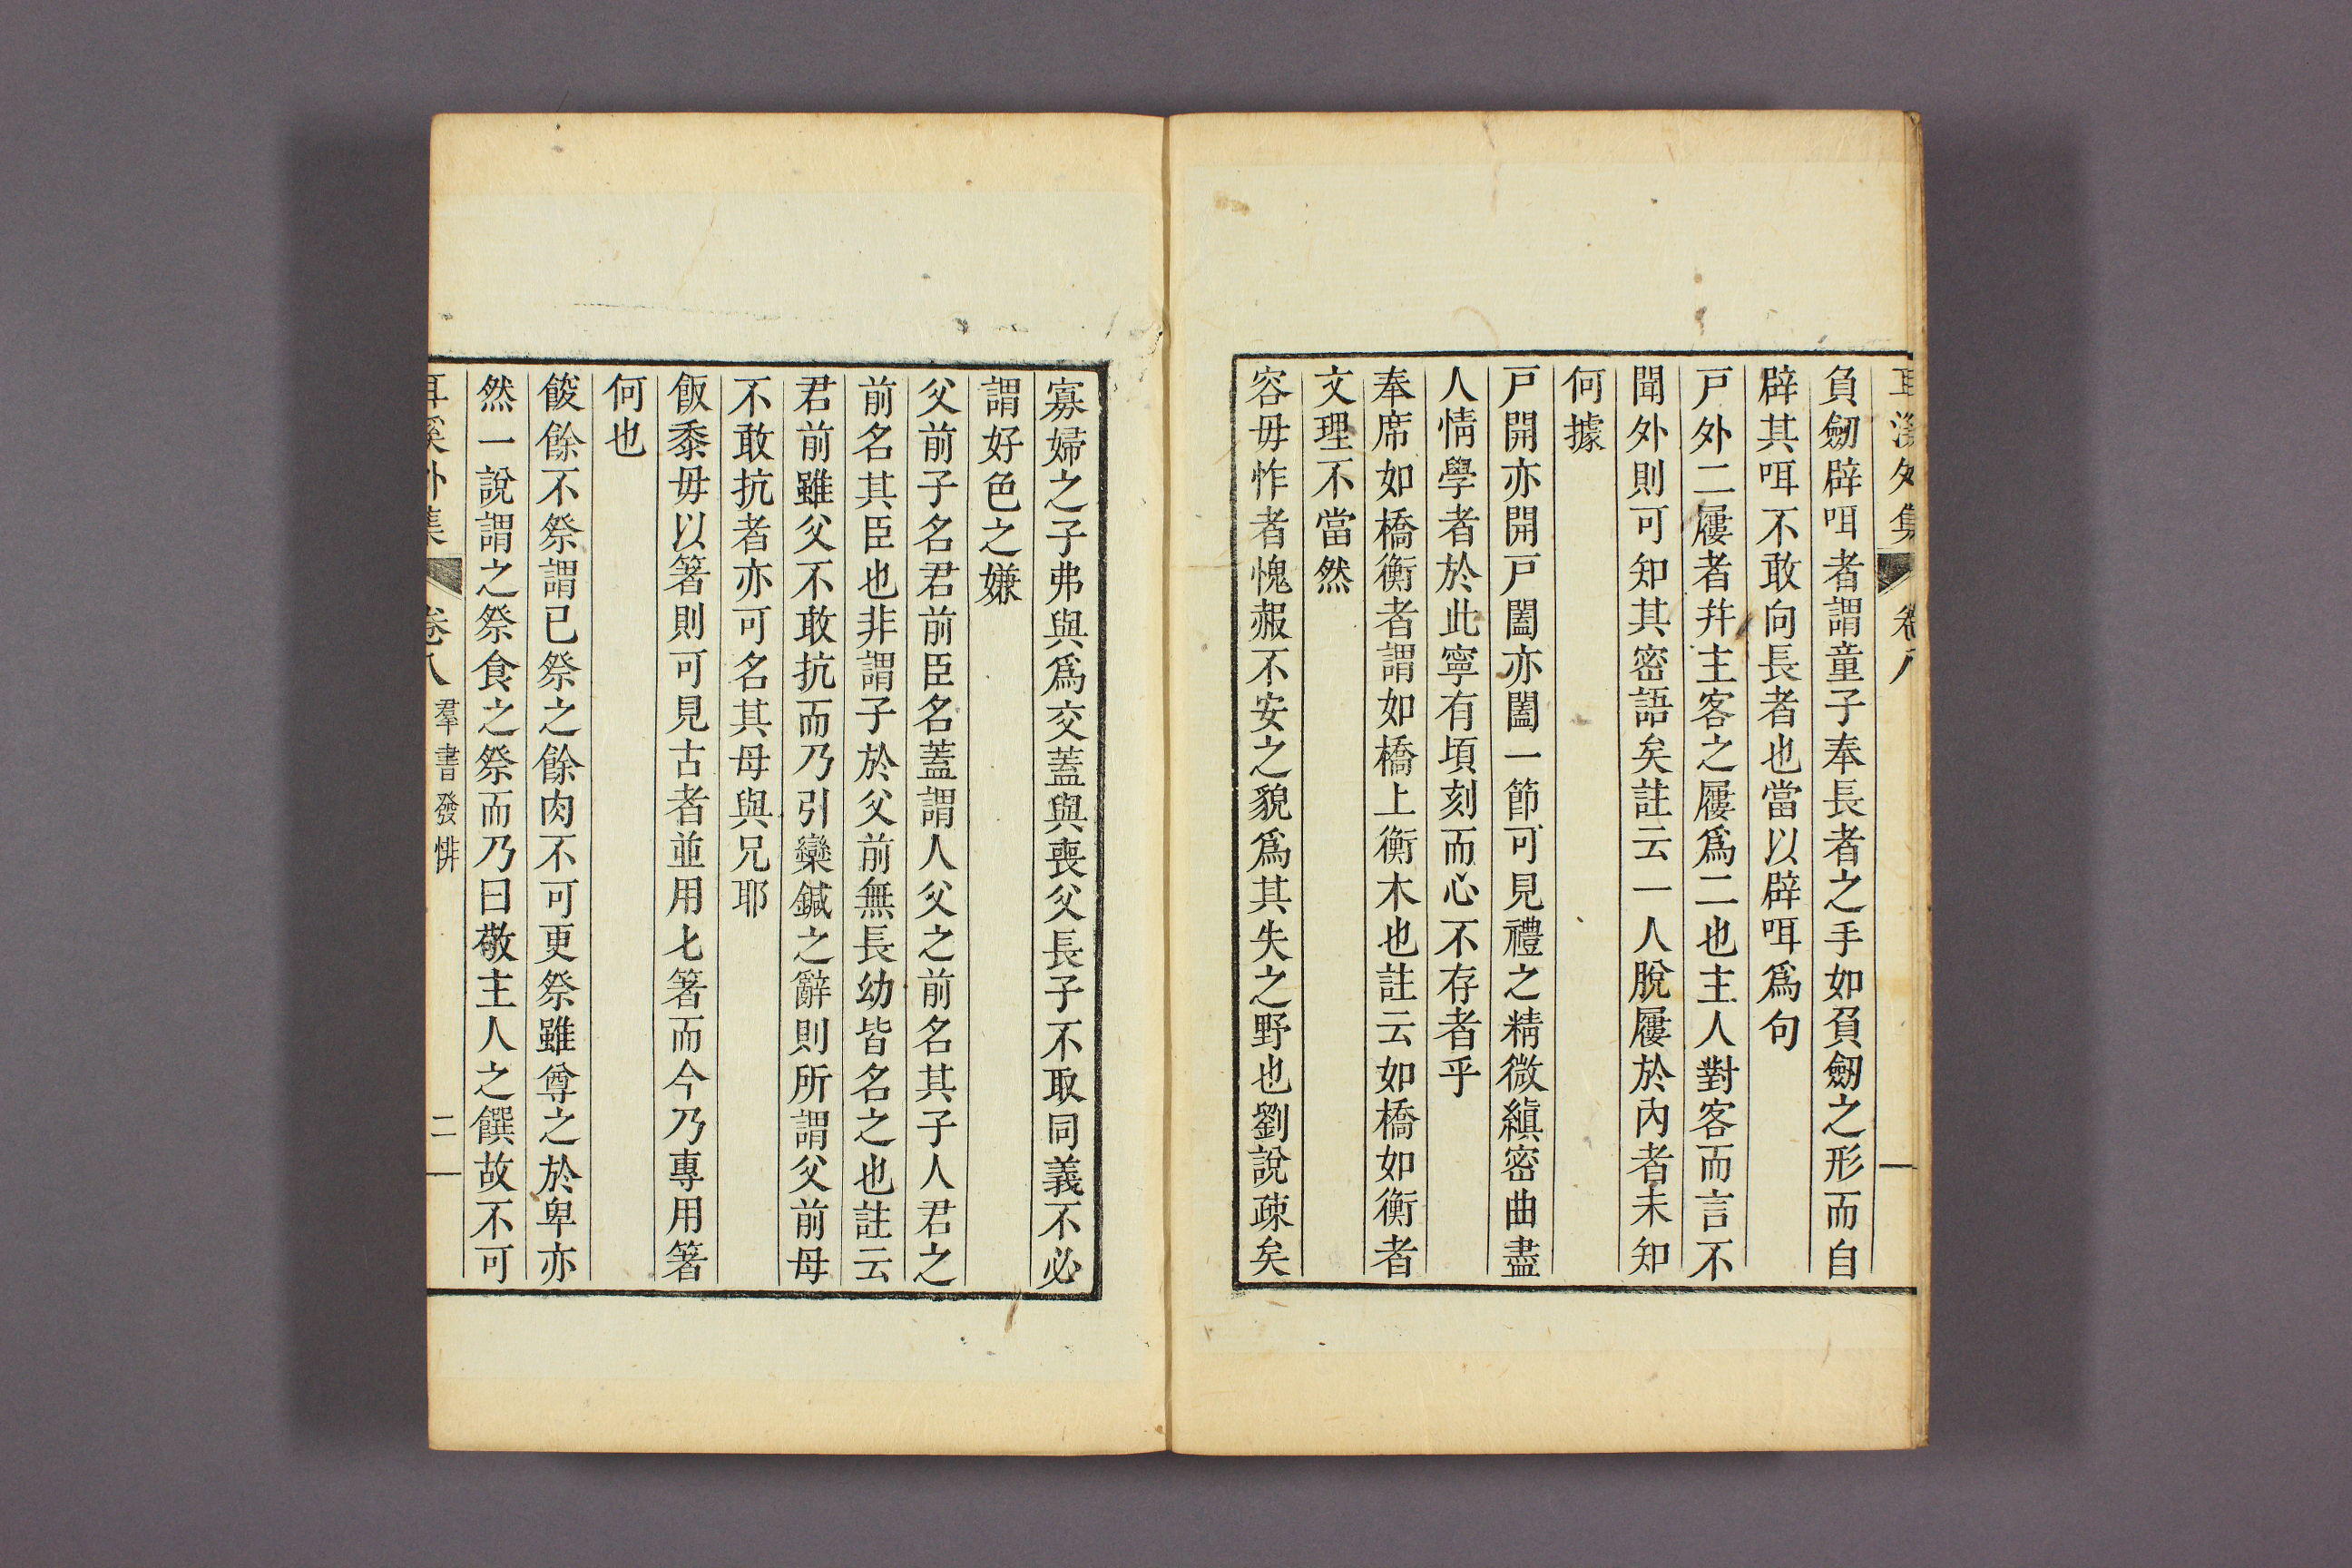 耳溪外集 卷八
負劒辟咡者謂童子奉長者之手如負劒之形而自
辟其咡不敢向長者也當以辟咡爲句
戸外二屨者幷主客之屨爲二也主人對客而言不
聞外則可知其密語矣註云一人脫屨於內者未知
何據
戸開亦開戸闔亦闔一節可見禮之精微縝密曲盡
人情學者於此寧有頃刻而心不存者乎
奉席如橋衡者謂如橋上衡木也註云如橋如衡者
文理不當然
容毋怍者愧赧不安之貌爲其失之野也劉說疎矣
寡婦之子弗與爲交蓋與喪父長子不取同義不必
謂好色之嫌
父前子名君前臣名蓋謂人父之前名其子人君之
前名其臣也非謂子於父前無長幼皆名之也註云
君前雖父不敢抗而乃引欒鍼之辭則所謂父前母
不敢抗者亦可名其母與兄耶
飯黍毋以箸則可見古者並用匕箸而今乃專用箸
何也
餕餘不祭謂已祭之餘肉不可更祭雖尊之於卑亦
然一說謂之祭食之祭而乃曰敬主人之饌故不可
耳溪外集 卷八 羣書發悱 二